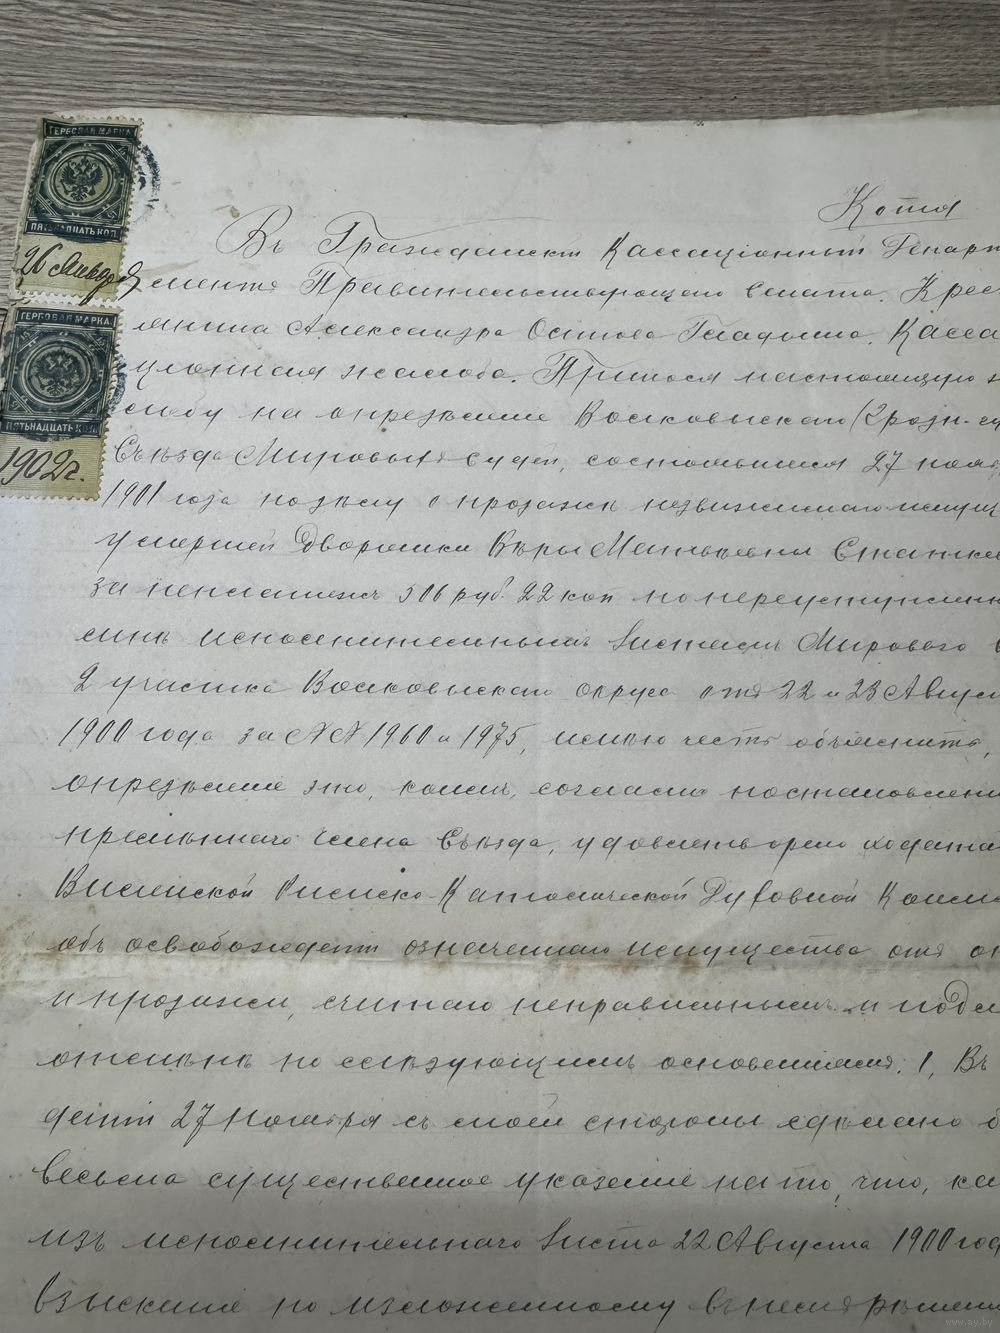 ГЕРБОВАЯ МАРКА
ПЯТЬНАДЦАТЬ КОП.
26 Января
ГЕРБОВАЯ МАРКА.
ПЯТЬНАДЦАТЬ КОП.
1902 г.
Копія
Въ Гражданскій Кассаціонный Депар
таментъ Правительствующаго Сената. Крес
янина Александра Осипова Касса
ціонная жалоба. Приношя настоящую
жалобу на опредѣленіе Волковыскаго (Гродн. гу
Съѣзда Мировыхъ Судей, состоявшееся 27 нояб
1901 года по дѣлу о продажѣ недвижимаго имущ
умершей Дворянки Вѣры Матвѣевны
за неплатежъ 506 руб. 22 коп по переуступленн
мнѣ исполнительнымъ листамъ Мирового
2 участка Волковыскаго округа отъ 22 и 23 Авгус
1900 года за №№ 1960 и 1975, имѣю честь объяснить,
опредѣленіе это, коимъ, согласно постановлені
непремѣннаго члена Съѣзда, удовлетворено ходата
Виленской Римско-Католической Духовной Конс
объ освобожденіи означеннаго имущества отъ оп
и продажи, считаю неправильнымъ и подле
отмѣнѣ по слѣдующимъ основаніямъ: 1, Въ
даніи 27 Ноября съ моей стороны сдѣлано б
весьма существенное указаніе на то, что, ка
изъ исполнительнаго листа 22 Августа 1900 год
взысканіе по изложенному въ немъ рѣшені
www.ay.by